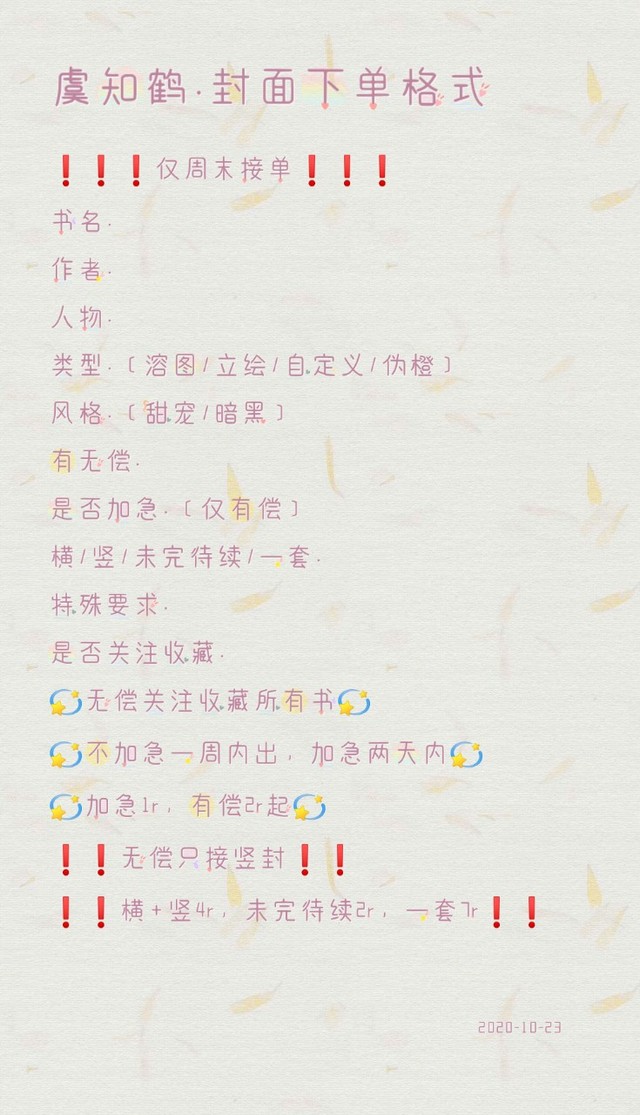 虞知鹤·封面下单格式
❗❗❗仅周末接单❗❗❗
书名·
作者·
人物·
类型·〔溶图/立绘/自定义/伪橙〕
风格·〔甜宠/暗黑〕
有无偿·
是否加急·〔仅有偿〕
横/竖/未完待续/一套·
特殊要求·
是否关注收藏·
💫无偿关注收藏所有书💫
💫不加急一周内出，加急两天内💫
💫加急1r，有偿2r起💫
❗❗无偿只接竖封❗❗
❗❗横+竖4r，未完待续2r，一套7r❗❗
2020-10-23